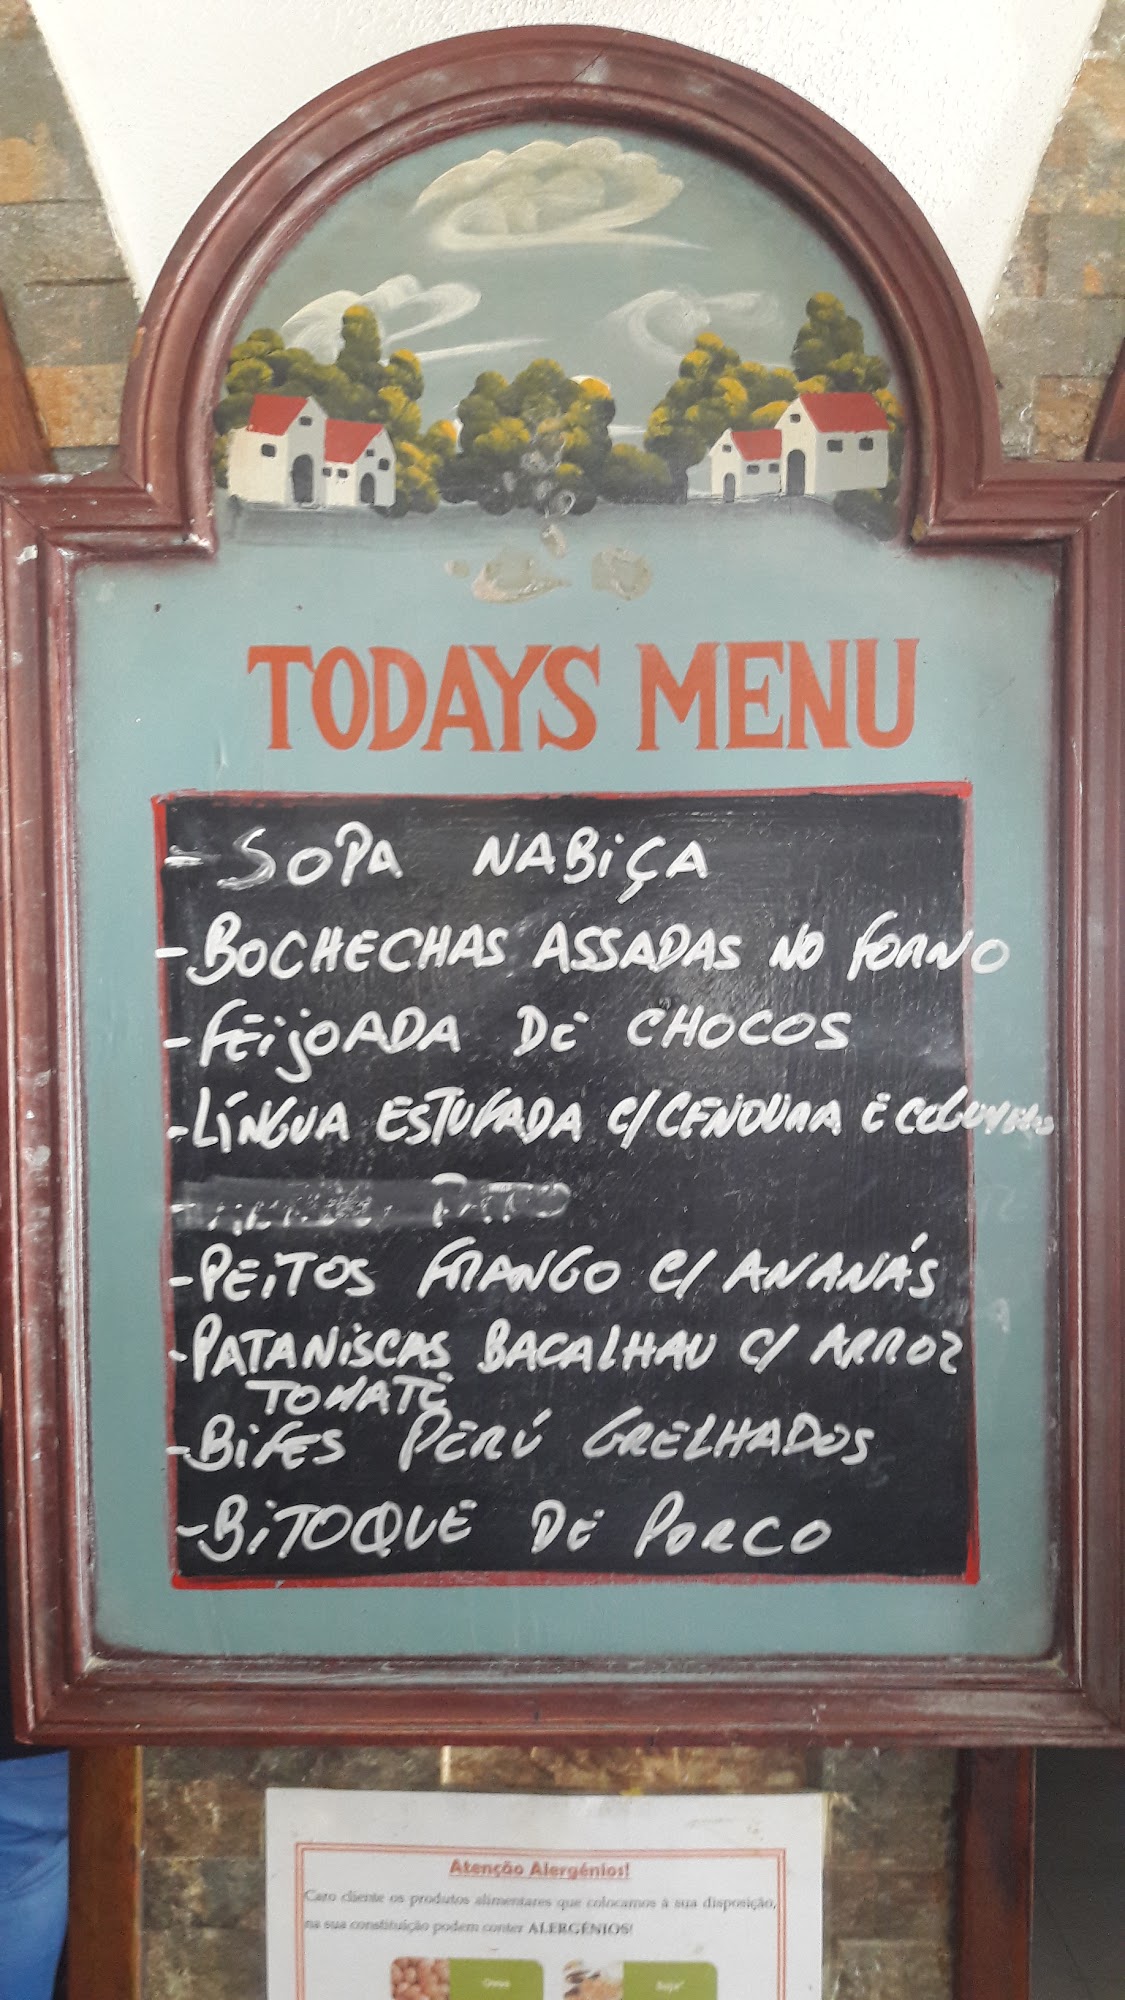 TODAYS MENU
- SOPA NABIÇA
- BOCHECHAS ASSADAS NO FORNO
- FEIJOADA DE CHOCOS
- LÍNGUA ESTUFADA C/ CENOURA E
PATO
- PEITOS FRANGO C/ ANANÁS
- PATANISCAS BACALHAU C/ ARROZ
TOMATE
- BIFES PERÚ GRELHADOS
- BITOQUE DE PORCO
Atenção Alergénios!
Caro cliente os produtos alimentares que colocamos à sua disposição,
na sua constituição podem conter ALERGÉNIOS!
Ovos Soja